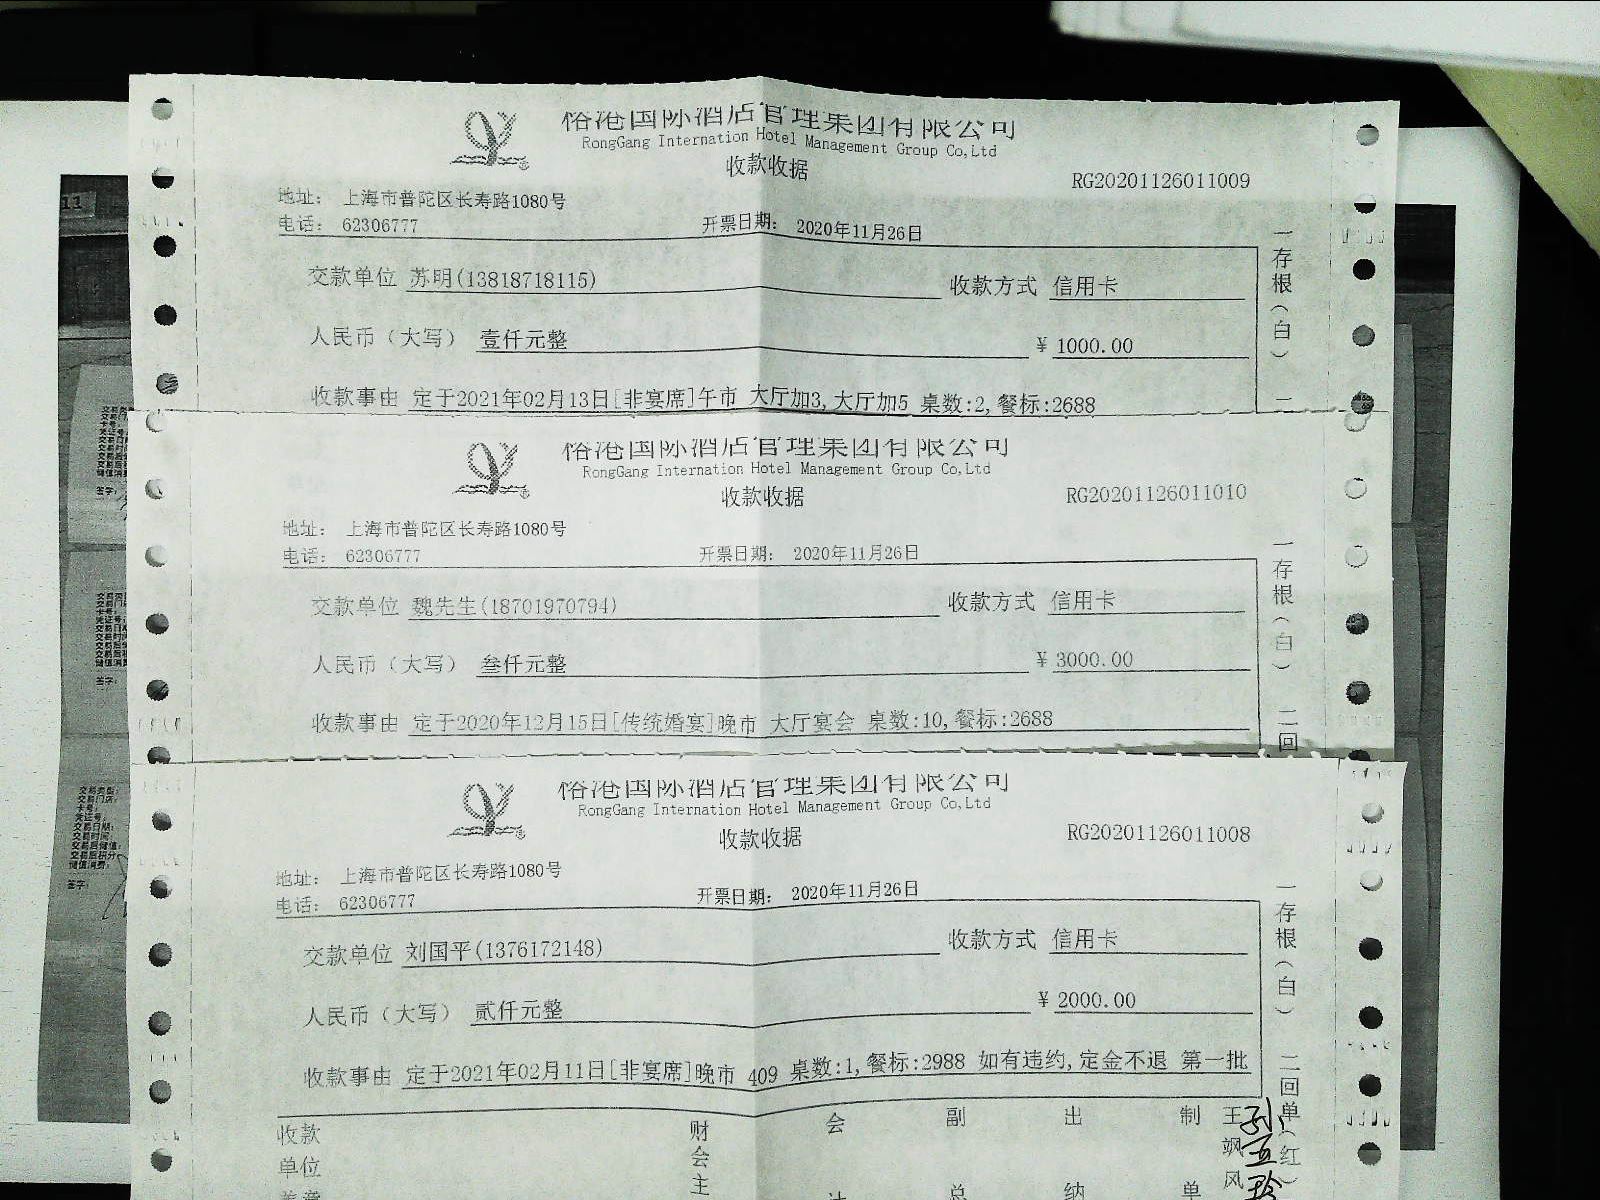 俗港国际酒店官理集团有限公司
RongGang Internation Hotel Management Group Co,Ltd
收款收据
RG20201126011009
地址: 上海市普陀区长寿路1080号
电话: 62306777 开票日期: 2020年11月26日
交款单位 苏明(13818718115) 收款方式 信用卡
人民币（大写） 壹仟元整 ¥ 1000.00
收款事由 定于2021年02月13日[非宴席]午市 大厅加3,大厅加5 桌数:2,餐标:2688
一存根（白） 二
俗港国际酒店官理集团有限公司
RongGang Internation Hotel Management Group Co,Ltd
收款收据
RG20201126011010
地址: 上海市普陀区长寿路1080号
电话: 62306777 开票日期: 2020年11月26日
交款单位 魏先生(18701970794) 收款方式 信用卡
人民币（大写） 叁仟元整 ¥ 3000.00
收款事由 定于2020年12月15日[传统婚宴]晚市 大厅宴会 桌数:10,餐标:2688
一存根（白） 二回
俗港国际酒店官理集团有限公司
RongGang Internation Hotel Management Group Co,Ltd
收款收据
RG20201126011008
地址: 上海市普陀区长寿路1080号
电话: 62306777 开票日期: 2020年11月26日
交款单位 刘国平(1376172148) 收款方式 信用卡
人民币（大写） 贰仟元整 ¥ 2000.00
收款事由 定于2021年02月11日[非宴席]晚市 409 桌数:1,餐标:2988 如有违约,定金不退 第一批
一存根（白） 二回单（红）
收款单位
财会主
会计
副总
出纳
制单
王飒风
交易门店:
卡号:
凭证号:
交易日期:
交易时间:
交易后储值:
交易后积分:
储值消费:
签字: